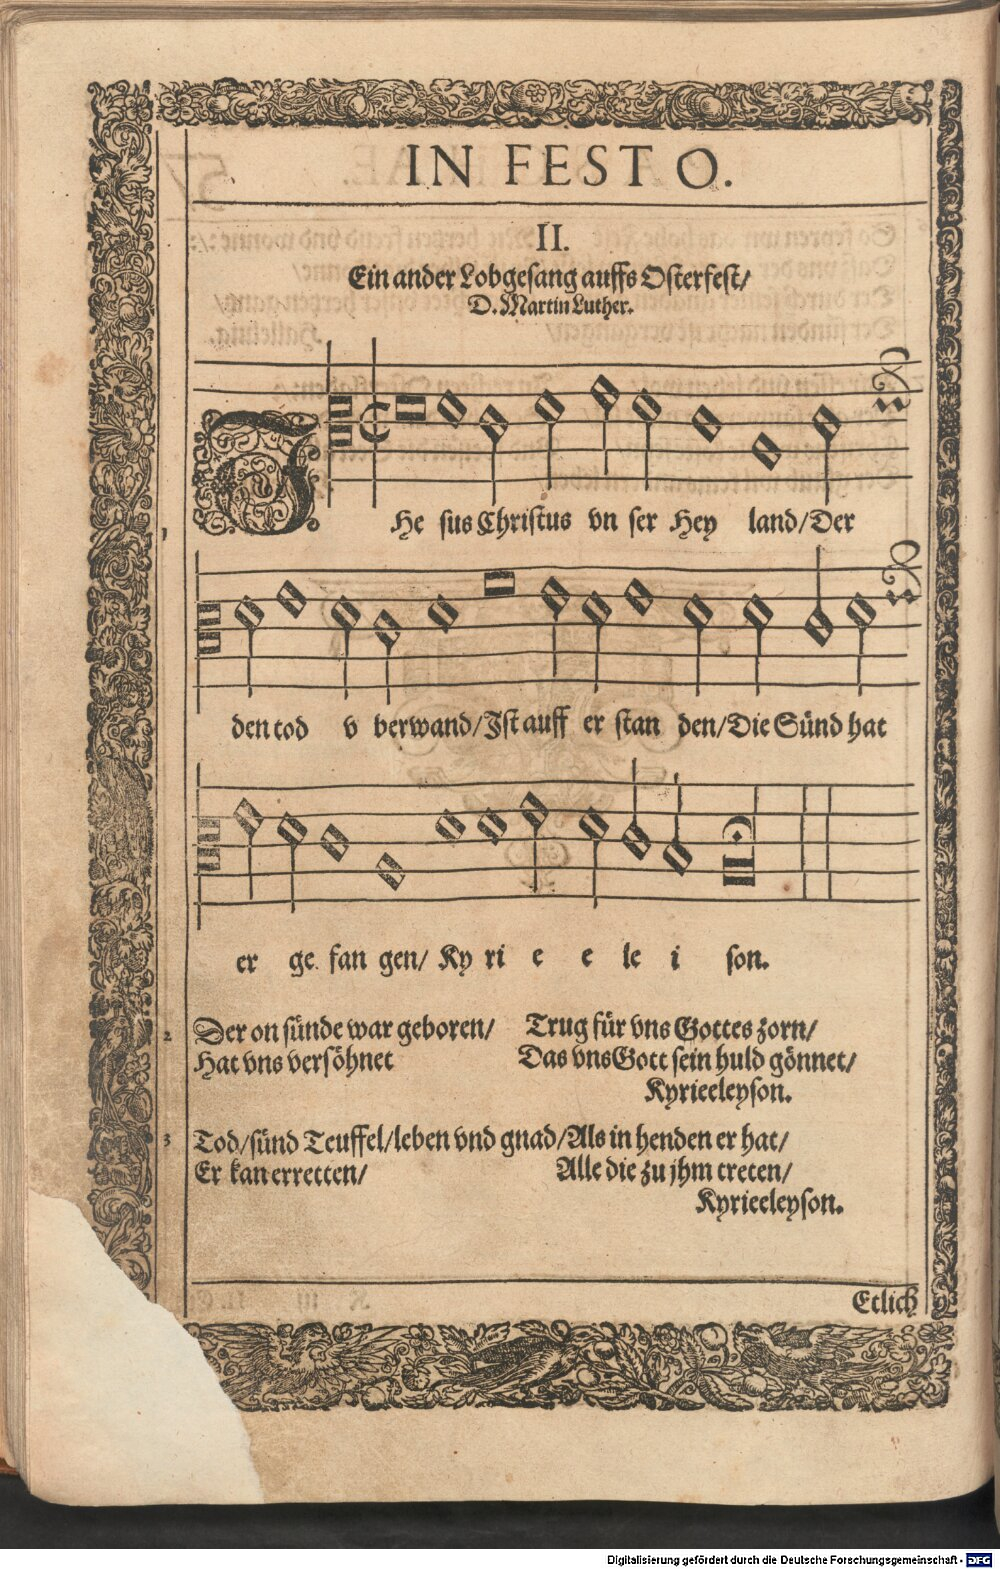 IN FESTO.
II.
Ein ander Lobgesang auffs Osterfest/
D. Martin Luther.
1
JHe sus Christus vn ser Hey land/Der
den tod v berwand/Ist auff er stan den/Die Sünd hat
er ge fan gen/ Ky ri e e le i son.
2 Der on sünde war geboren/ Trug für vns Gottes zorn/
Hat vns versöhnet Das vns Gott sein huld gönnet/
Kyrieeleyson.
3 Tod/sünd Teuffel/leben vnd gnad/Als in henden er hat/
Er kan erretten/ Alle die zu jhm treten/
Kyrieeleyson.
Etlich
Digitalisierung gefördert durch die Deutsche Forschungsgemeinschaft - DFG